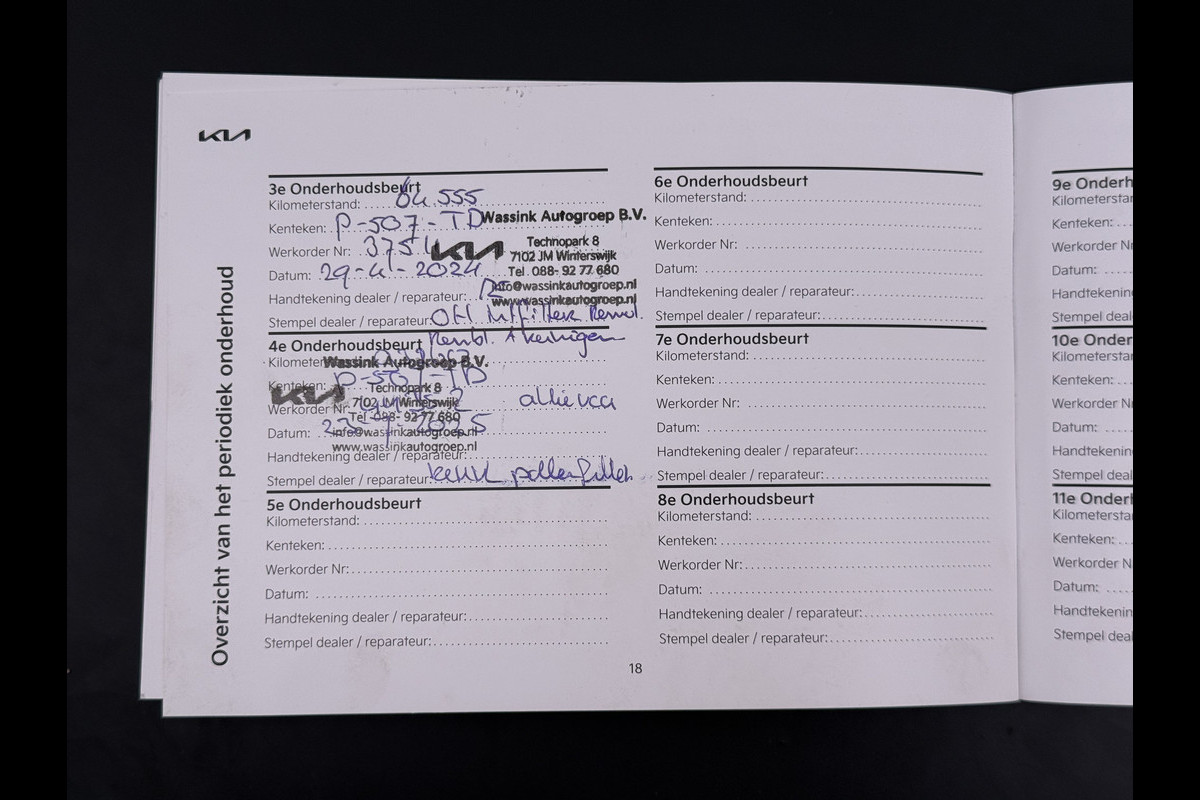 KIA
Overzicht van het periodiek onderhoud
3e Onderhoudsbeurt
Kilometerstand: 64.555
Kenteken: P-507-TD
Werkorder Nr: 3754
Datum: 29-4-2024
Handtekening dealer / reparateur:
Stempel dealer / reparateur:
Wassink Autogroep B.V.
KIA
Technopark 8
7102 JM Winterswijk
Tel. 088- 92 77 680
info@wassinkautogroep.nl
www.wassinkautogroep.nl
4e Onderhoudsbeurt
Kenteken: P-507-TD
Werkorder Nr:
Datum:
Handtekening dealer / reparateur:
Stempel dealer / reparateur:
Wassink Autogroep B.V.
KIA
Technopark 8
7102 JM Winterswijk
Tel. 088- 92 77 680
info@wassinkautogroep.nl
www.wassinkautogroep.nl
5e Onderhoudsbeurt
Kilometerstand:
Kenteken:
Werkorder Nr:
Datum:
Handtekening dealer / reparateur:
Stempel dealer / reparateur:
6e Onderhoudsbeurt
Kilometerstand:
Kenteken:
Werkorder Nr:
Datum:
Handtekening dealer / reparateur:
Stempel dealer / reparateur:
7e Onderhoudsbeurt
Kilometerstand:
Kenteken:
Werkorder Nr:
Datum:
Handtekening dealer / reparateur:
Stempel dealer / reparateur:
8e Onderhoudsbeurt
Kilometerstand:
Kenteken:
Werkorder Nr:
Datum:
Handtekening dealer / reparateur:
Stempel dealer / reparateur:
18
9e Onderh
Kilometerstar
Kenteken:
Werkorder N
Datum:
Handtekenin
Stempel deal
10e Onder
Kilometersta
Kenteken:
Werkorder N
Datum:
Handtekenin
Stempel dea
11e Onderh
Kilometersta
Kenteken:
Werkorder N
Datum:
Handtekenin
Stempel deal